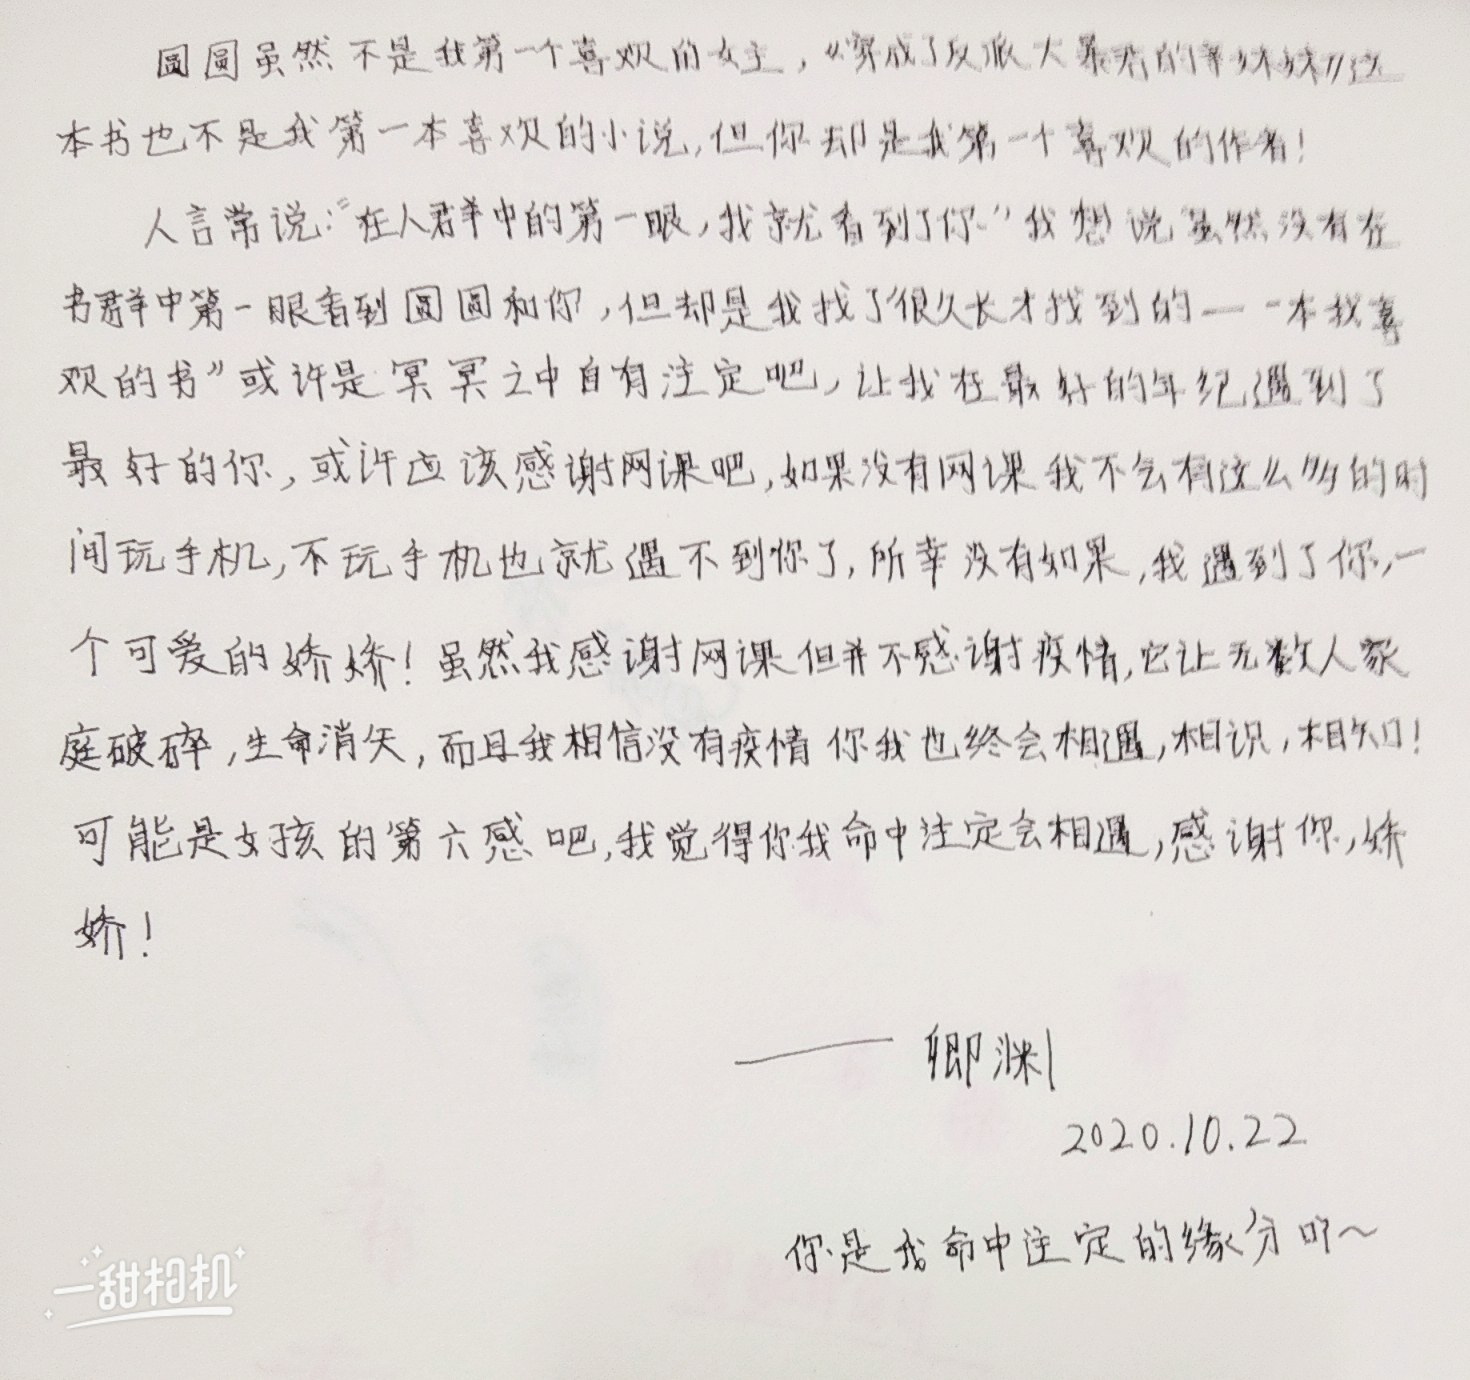 圆圆虽然不是我第一个喜欢的女主，《穿成了反派大暴君的亲妹妹》这
本书也不是我第一本喜欢的小说，但你却是我第一个喜欢的作者！
人言常说：“在人群中的第一眼，我就看到了你”我想说“虽然没有在
书群中第一眼看到圆圆和你，但却是我找了很久长才找到的——一本我喜
欢的书”或许是冥冥之中自有注定吧，让我在最好的年纪遇到了
最好的你，或许应该感谢网课吧，如果没有网课我不会有这么多的时
间玩手机，不玩手机也就遇不到你了，所幸没有如果，我遇到了你，一
个可爱的娇娇！虽然我感谢网课但并不感谢疫情，它让无数人家
庭破碎，生命消失，而且我相信没有疫情你我也终会相遇，相识，相知！
可能是女孩的第六感吧，我觉得你我命中注定会相遇，感谢你，娇
娇！
——卿渊
2020.10.22
你是我命中注定的缘分吖～
一甜相机